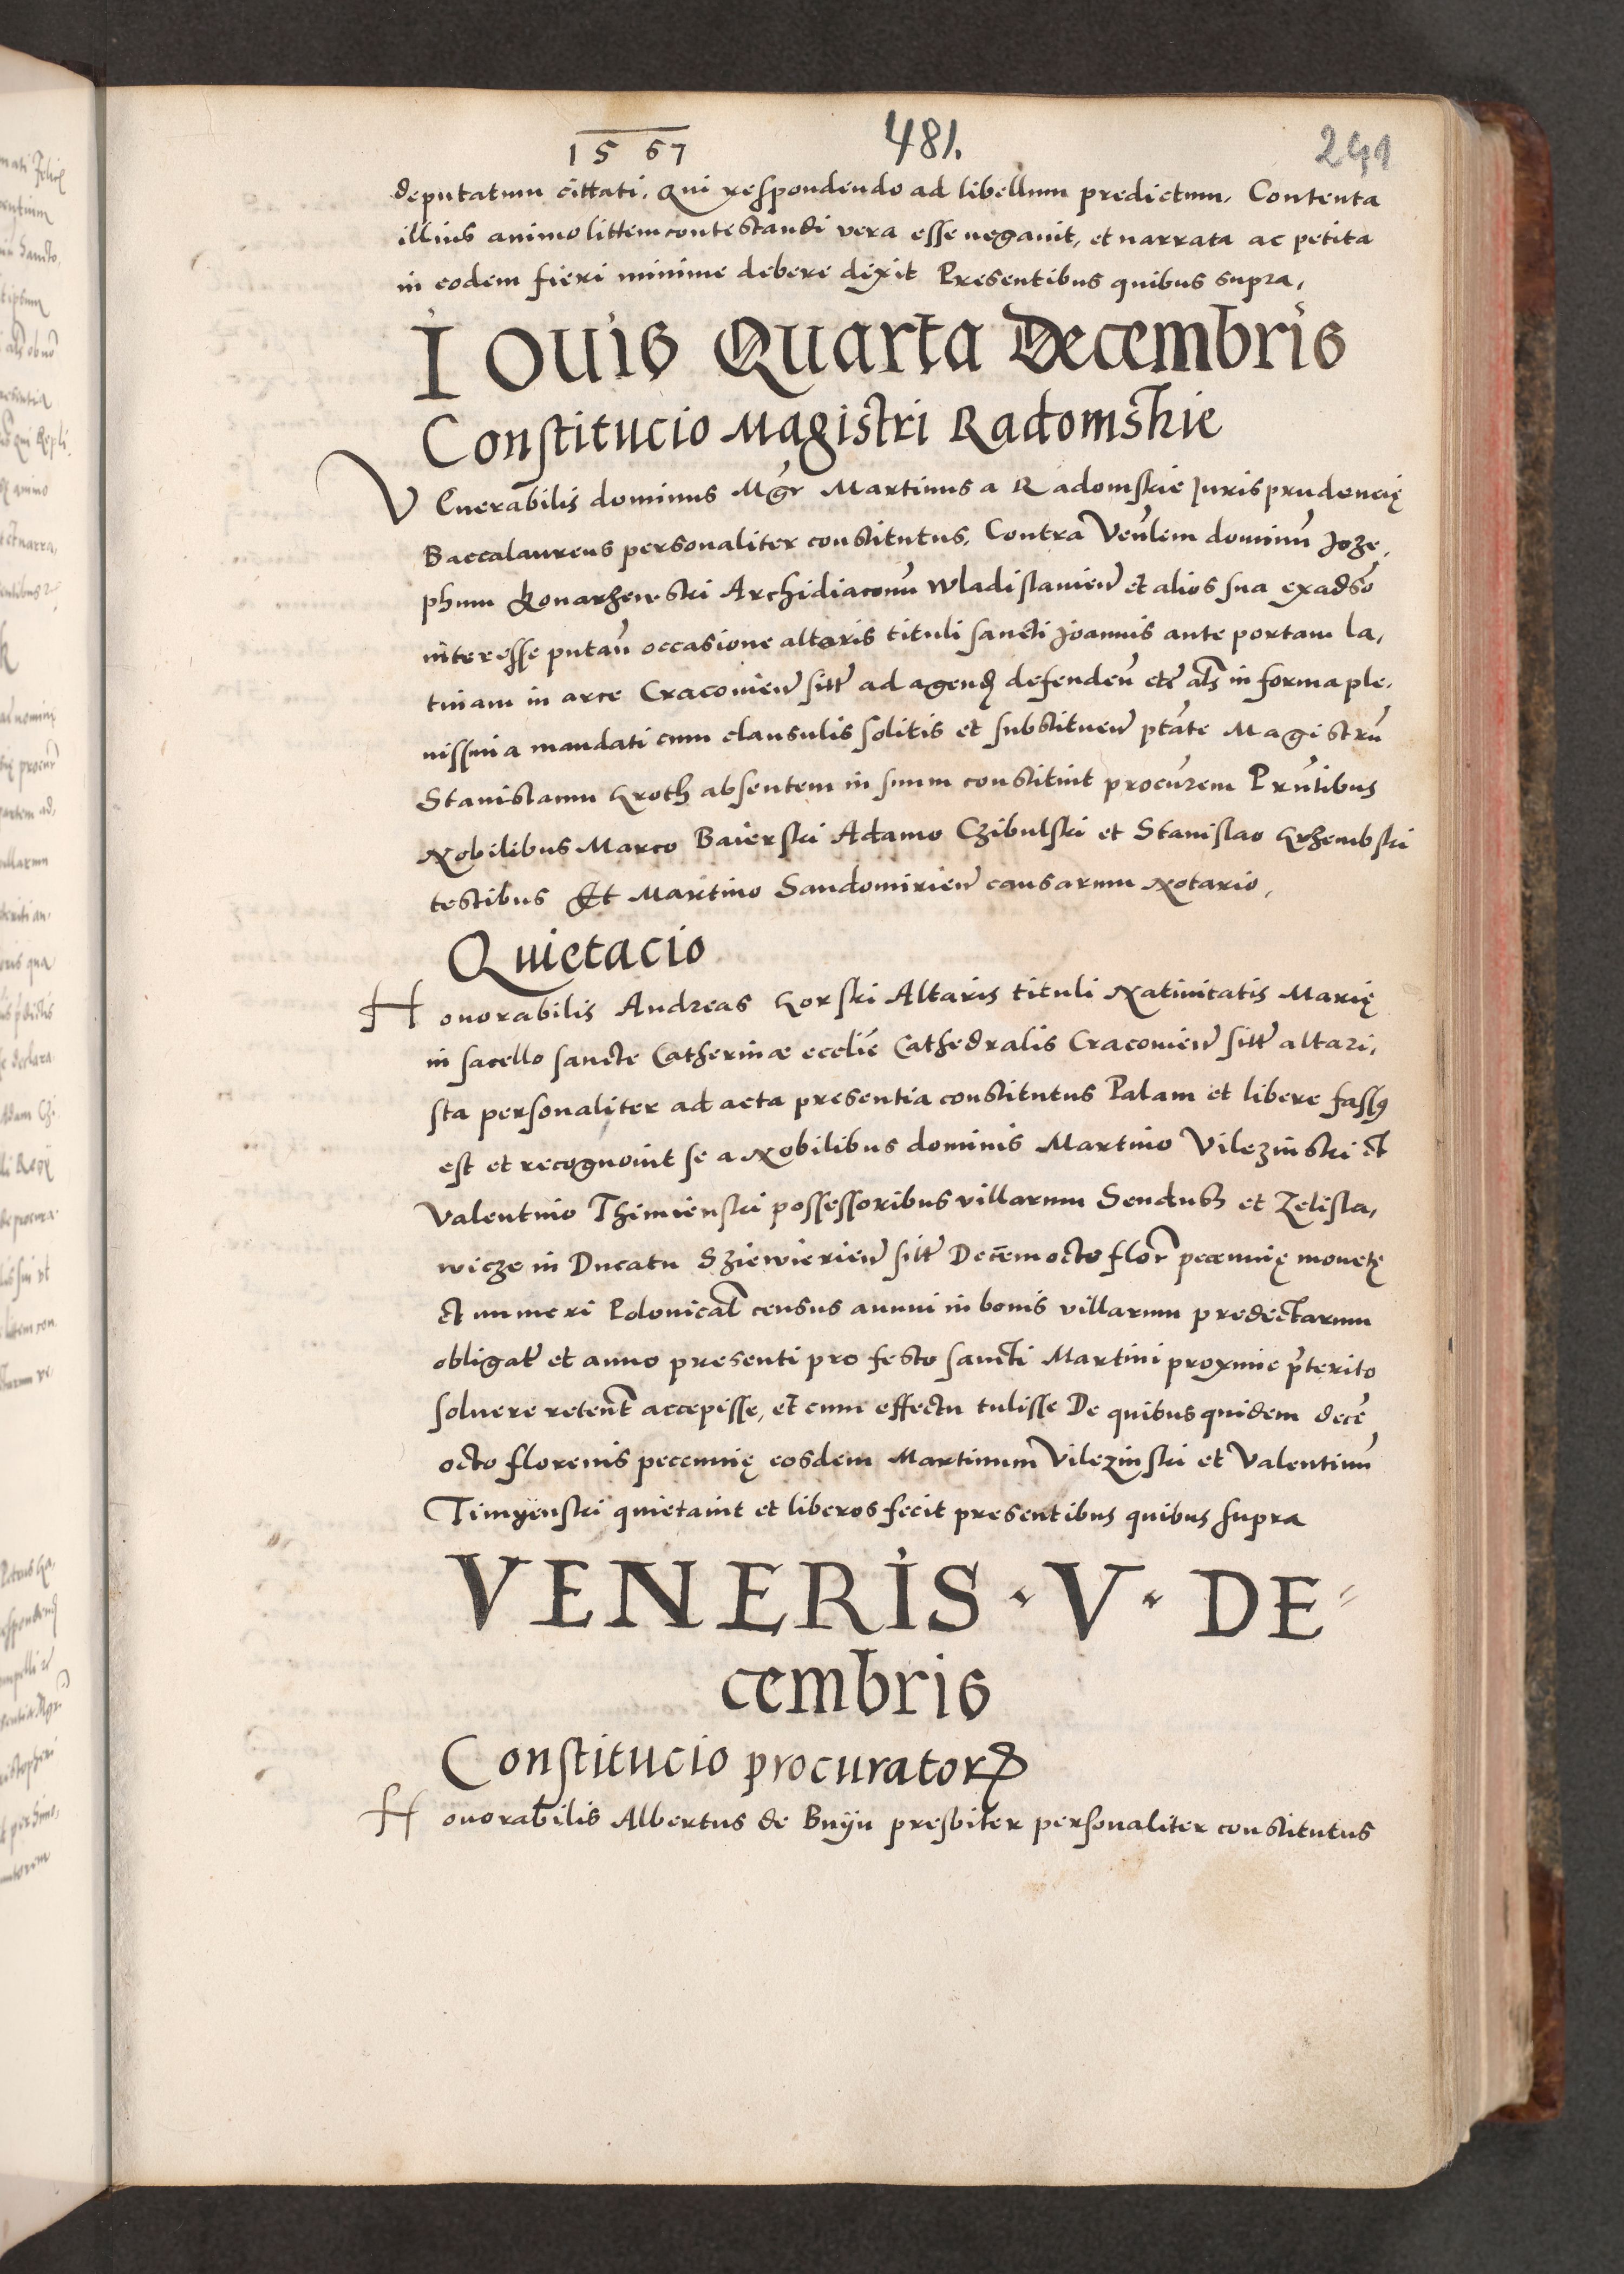 1567 481. 241
deputatum cittati. Qui respondendo ad libellum predictum. Contenta
illius animo littem contestandi vera esse negauit, et narrata ac petita
in eodem fieri minime debere dixit Presentibus quibus supra,
IOUIS Quarta Decembris
Constitucio Magistri Radomskie
VEnerabilis dominus Mgr Martinus a Radomskie Jurisprudencię
Baccalaureus personaliter constitutus. Contra Venlem dominū Joze,
phum Konarzewski Archidiaconū Wladislauien et alios sua exadso
interesse putan occasione altaris tituli sancti Joannis ante portam la,
tinam in arce Cracouien sitt ad agend defenden etc als in forma ple,
nissima mandati cum clausulis solitis et substituen ptate Magistrū
Stanislaum Kroth absentem in suum constituit procurem Prntibus
Nobilibus Marco Baierski Adamo Czibulski et Stanislao Krzembski
testibus Et Martino Sandomirien causarum Notario,
Quietacio
Honorabilis Andreas Gorski Altaris tituli Natiuitatis Marię
in sacello sancte Catherinæ ecclie Cathedralis Cracouien sitt altari,
sta personaliter ad acta presentia constitutus Palam et libere fassus
est et recognouit se a Nobilibus dominis Martino Vilczinski et
Valentino Thimienski possessoribus villarum Senduss et Zelisla,
wicze in Ducatu Sziewierien sitt Decem octo flor pecunię monetę
et numeri Polonical census annui in bonis villarum predictarum
obligat et anno presenti pro festo sancti Martini proxime pterito
soluere retent accepisse, et cum effectu tulisse De quibus quidem decē
octo florenis pecunię eosdem Martinum Vilczinski et Valentinū
Timyenski quietauit et liberos fecit presentibus quibus supra
VENERIS · V · DE
cembris
Constitucio procurator
Honorabilis Albertus de Bnyn presbiter personaliter constitutus